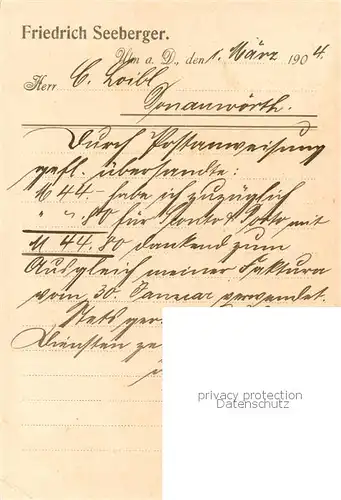 Friedrich Seeberger.
Ulm a. D., den 1. März 1904.
Herr C. Loibl
Donauwörth.
Durch Postanweisung
gefl. übersandte:
M 44.- habe ich zuzüglich
" -.80 für Konto & Porto mit
M 44.80 dankend zum
Ausgleich meiner Faktura
vom 30. Januar verwendet.
Stets gern
Diensten zu
privacy protection
Datenschutz